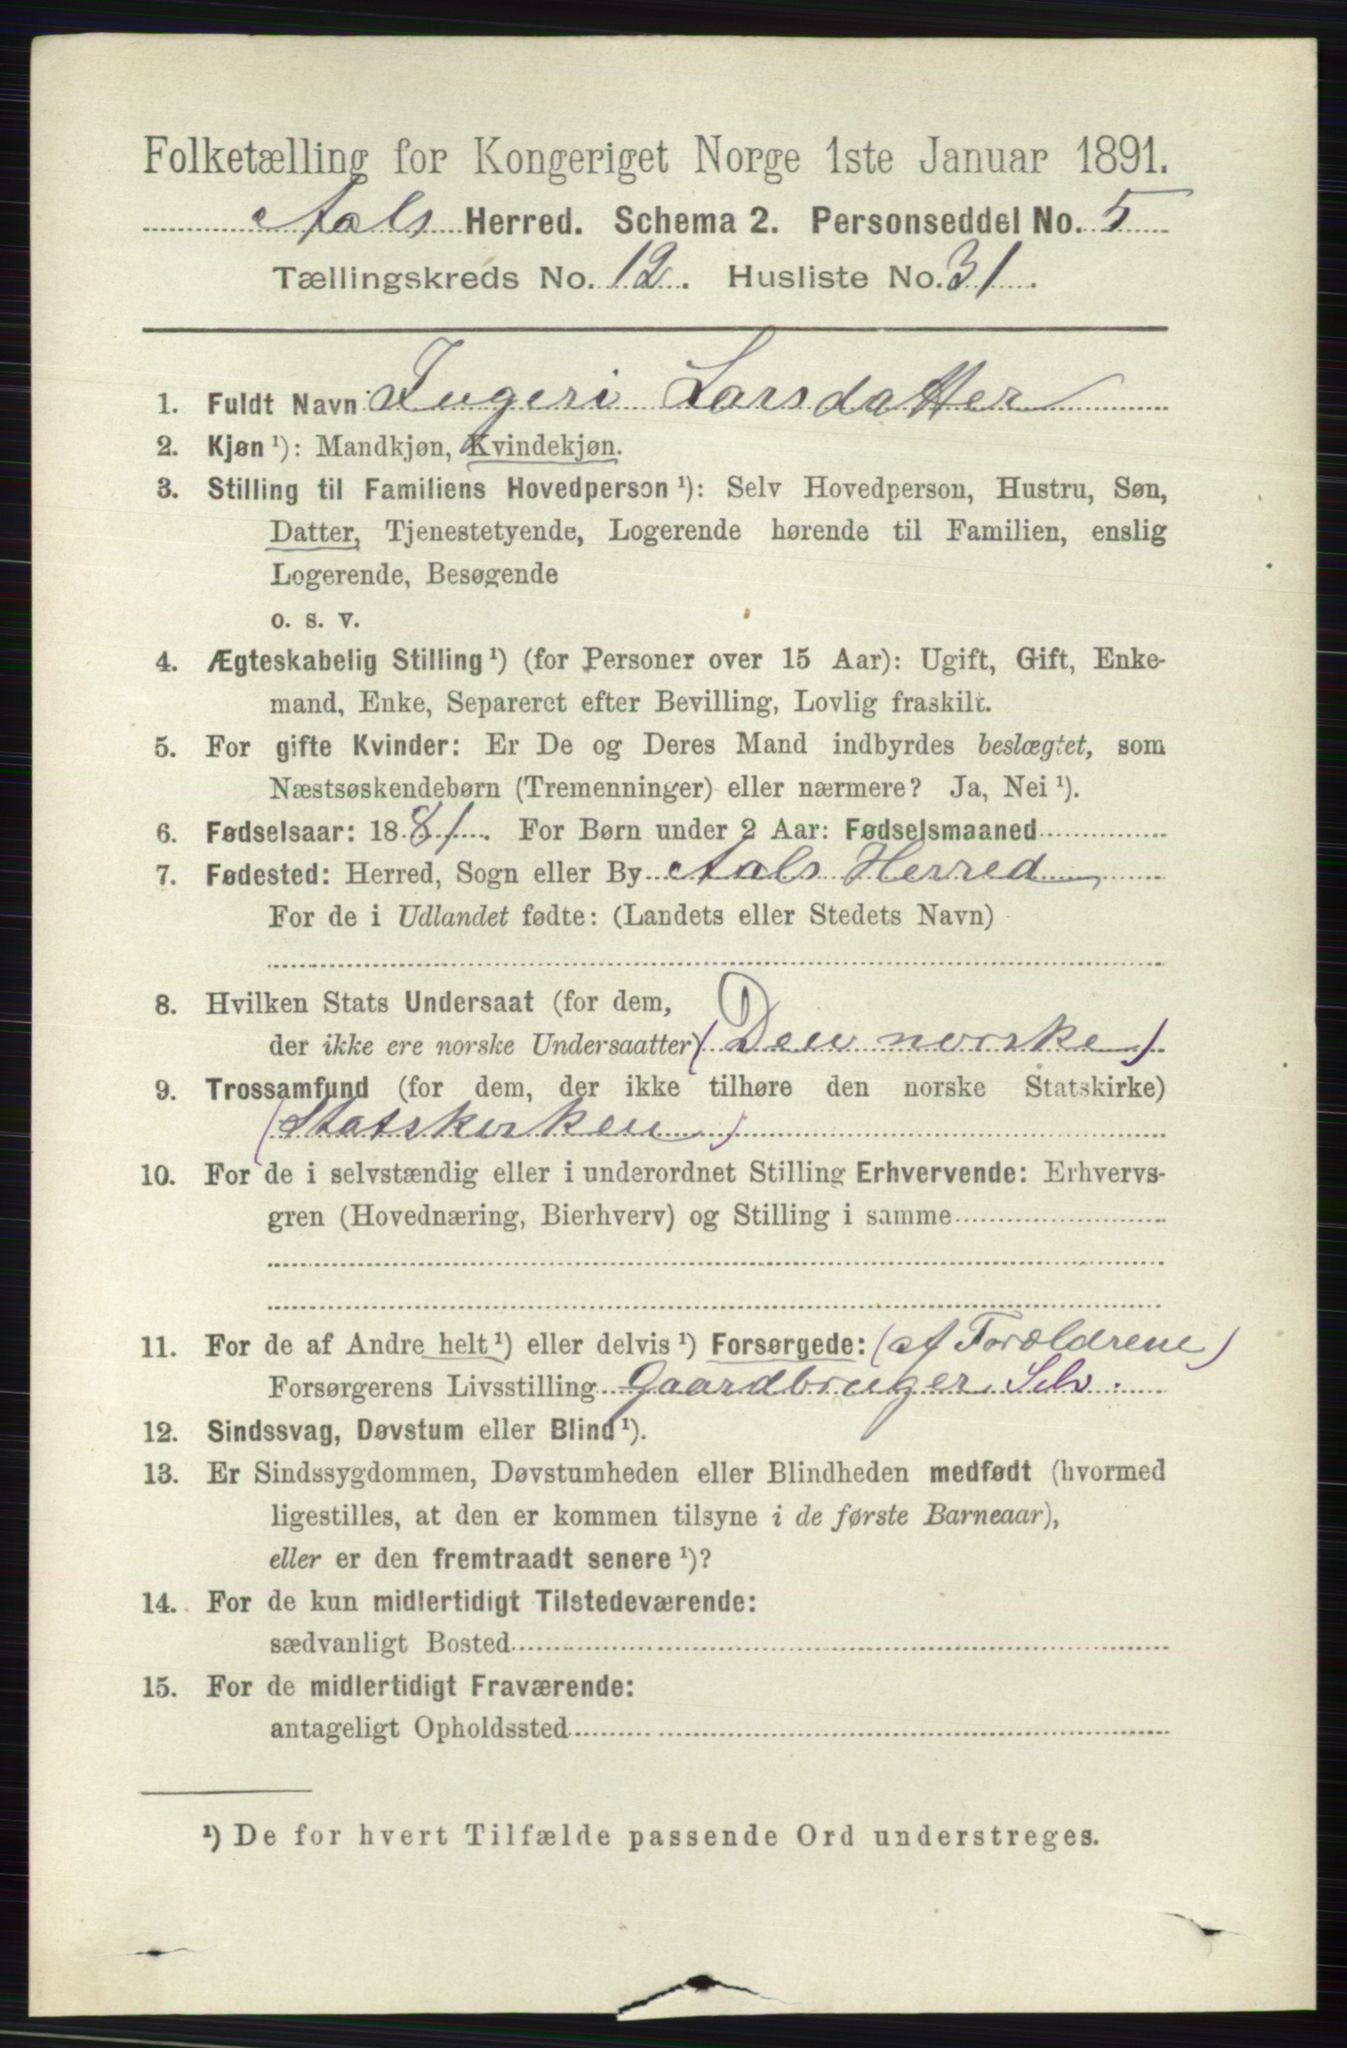 Folketælling for Kongeriget Norge 1ste Januar 1891.
Aals Herred. Schema 2. Personseddel No. 5
Tællingskreds No. 12. Husliste No. 31.
1. Fuldt Navn Ingeri Larsdatter
2. Kjøn ¹): Mandkjøn, Kvindekjøn.
3. Stilling til Familiens Hovedperson ¹): Selv Hovedperson, Hustru, Søn,
Datter, Tjenestetyende, Logerende hørende til Familien, enslig
Logerende, Besøgende
o. s. v.
4. Ægteskabelig Stilling ¹) (for Personer over 15 Aar): Ugift, Gift, Enke-
mand, Enke, Separeret efter Bevilling, Lovlig fraskilt.
5. For gifte Kvinder: Er De og Deres Mand indbyrdes beslægtet, som
Næstsøskendebørn (Tremenninger) eller nærmere? Ja, Nei ¹).
6. Fødselsaar: 1881. For Børn under 2 Aar: Fødselsmaaned
7. Fødested: Herred, Sogn eller By Aals Herred
For de i Udlandet fødte: (Landets eller Stedets Navn)
8. Hvilken Stats Undersaat (for dem,
der ikke ere norske Undersaatter) (Den norske)
9. Trossamfund (for dem, der ikke tilhøre den norske Statskirke)
(Statskirken)
10. For de i selvstændig eller i underordnet Stilling Erhvervende: Erhvervs-
gren (Hovednæring, Bierhverv) og Stilling i samme
11. For de af Andre helt ¹) eller delvis ¹) Forsørgede: (af Forældrene)
Forsørgerens Livsstilling Gaardbruger Selv.
12. Sindssvag, Døvstum eller Blind ¹).
13. Er Sindssygdommen, Døvstumheden eller Blindheden medfødt (hvormed
ligestilles, at den er kommen tilsyne i de første Barneaar),
eller er den fremtraadt senere ¹)?
14. For de kun midlertidigt Tilstedeværende:
sædvanligt Bosted
15. For de midlertidigt Fraværende:
antageligt Opholdssted
¹) De for hvert Tilfælde passende Ord understreges.